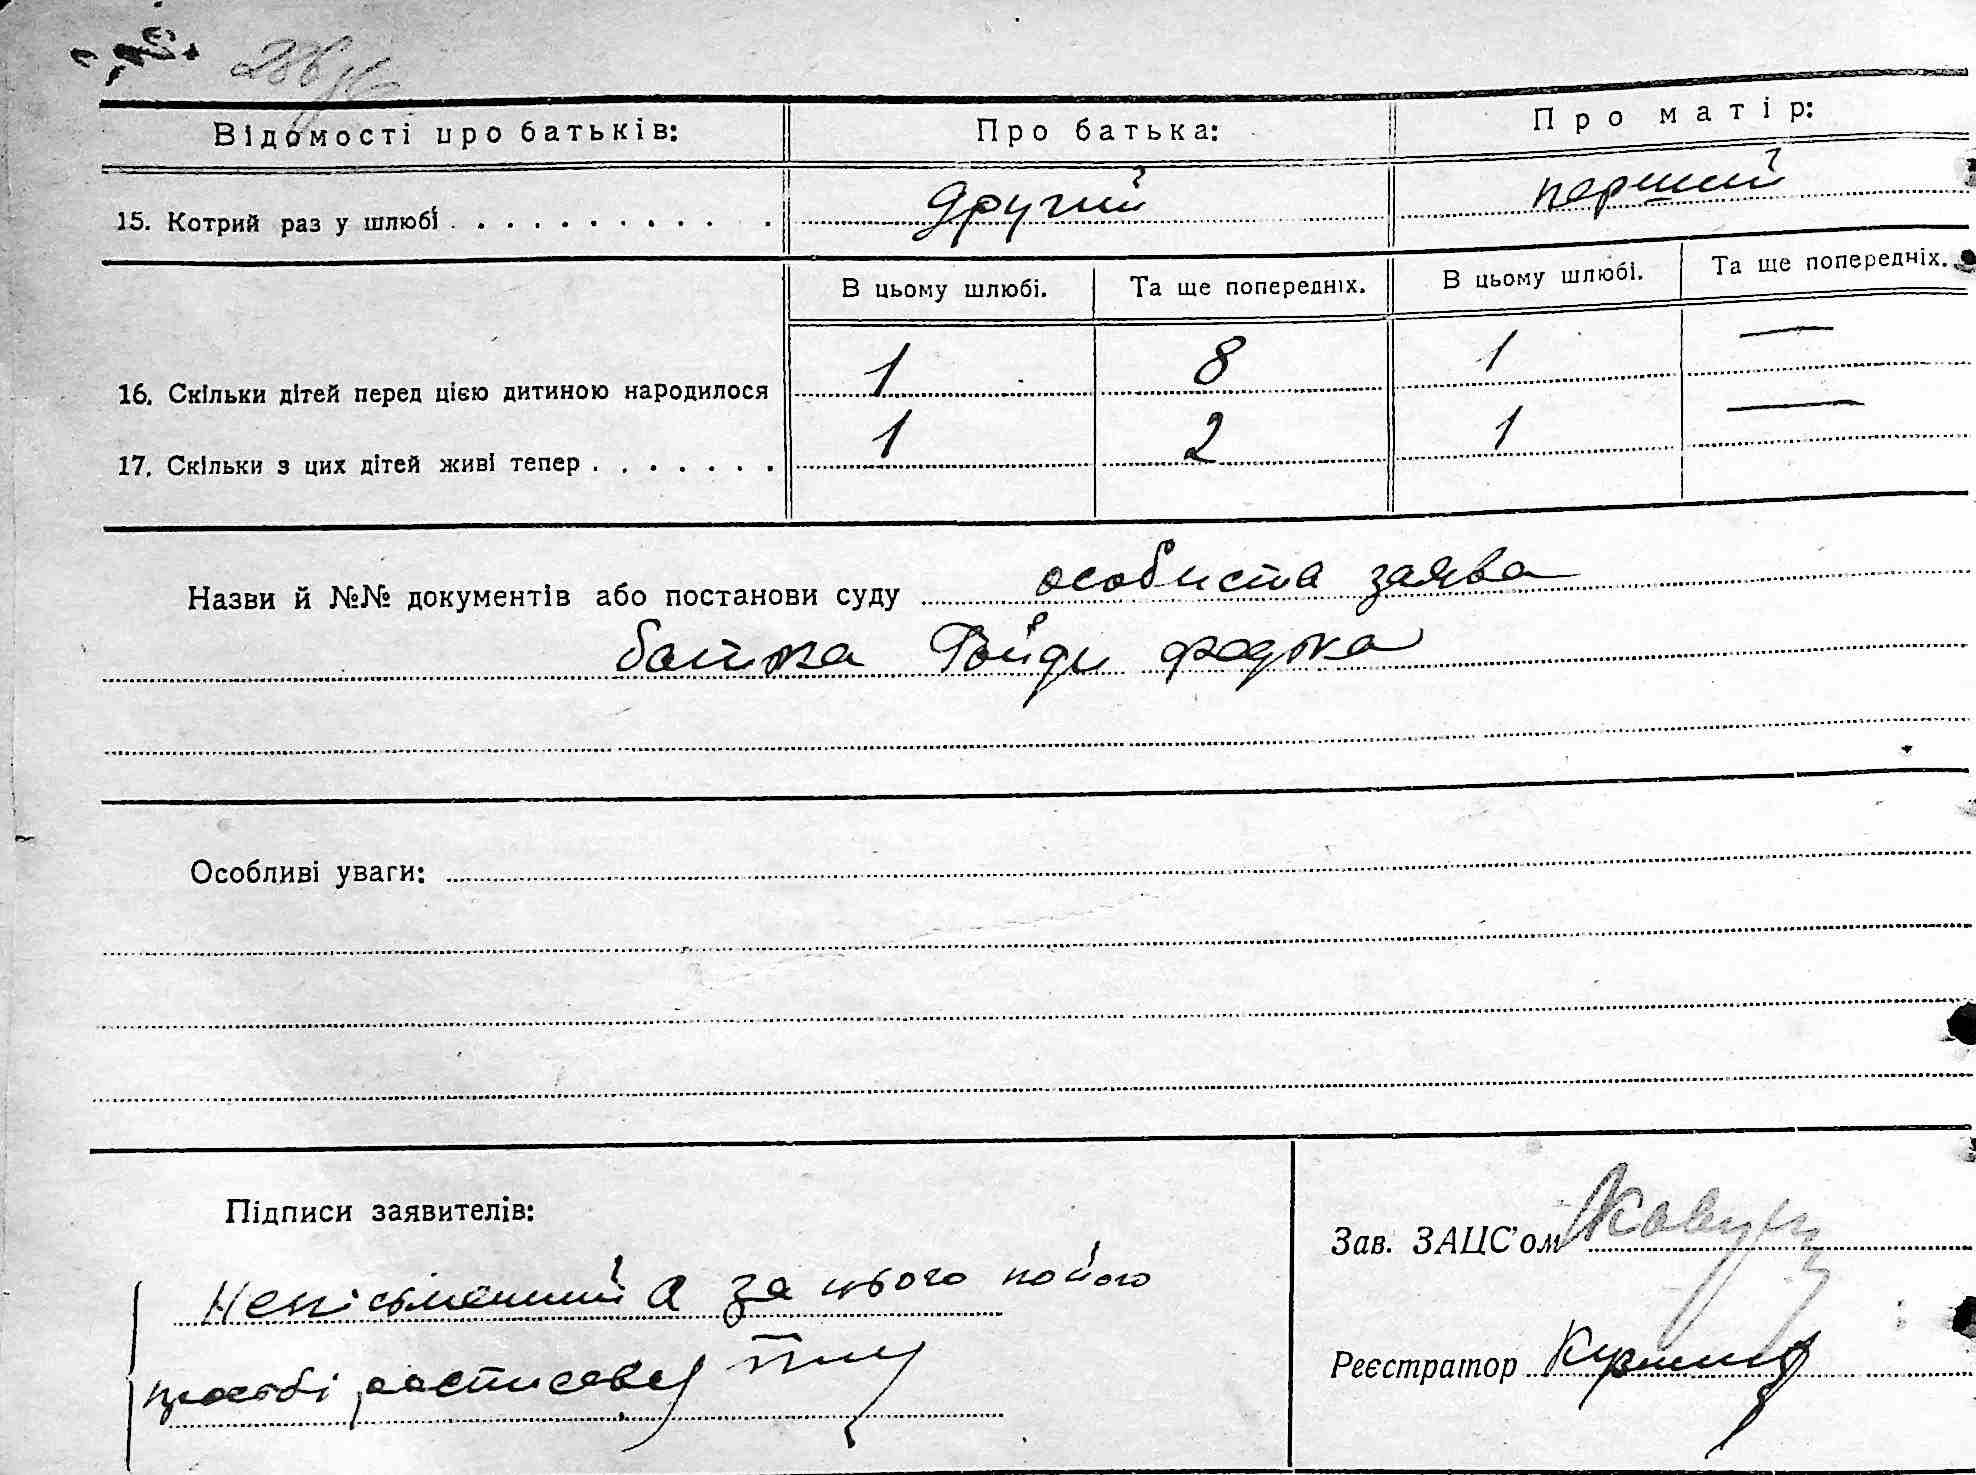 Відомості про батьків: Про батька: Про матір:
15. Котрий раз у шлюбі . . . . . . . . . . . . другий перший
В цьому шлюбі. Та ще попередніх. В цьому шлюбі. Та ще попередніх.
16. Скільки дітей перед цією дитиною народилося 1 8 1 —
17. Скільки з цих дітей живі тепер . . . . . . . 1 2 1 —
Назви й №№ документів або постанови суду особиста заява
батька Гойди федька
Особливі уваги:
Підписи заявителів:
Неписьменний а за нього по його
просьбі
Зав. ЗАЦС'ом Ковун
Реєстратор